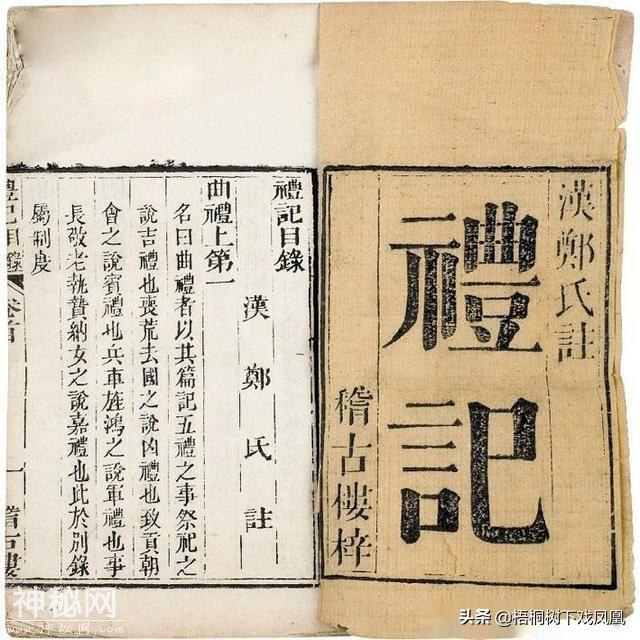 漢鄭氏註
禮記
稽古樓梓
禮記目錄
漢鄭氏註
曲禮上第一
名曰曲禮者以其篇記五禮之事祭祀之
說吉禮也喪荒去國之說凶禮也致貢朝
會之說賓禮也兵車旌鴻之說軍禮也事
長敬老執贄納女之說嘉禮也此於別錄
屬制度
禮記目錄 卷首 一 稽古樓
神秘网
头条 @梧桐树下戏凤凰